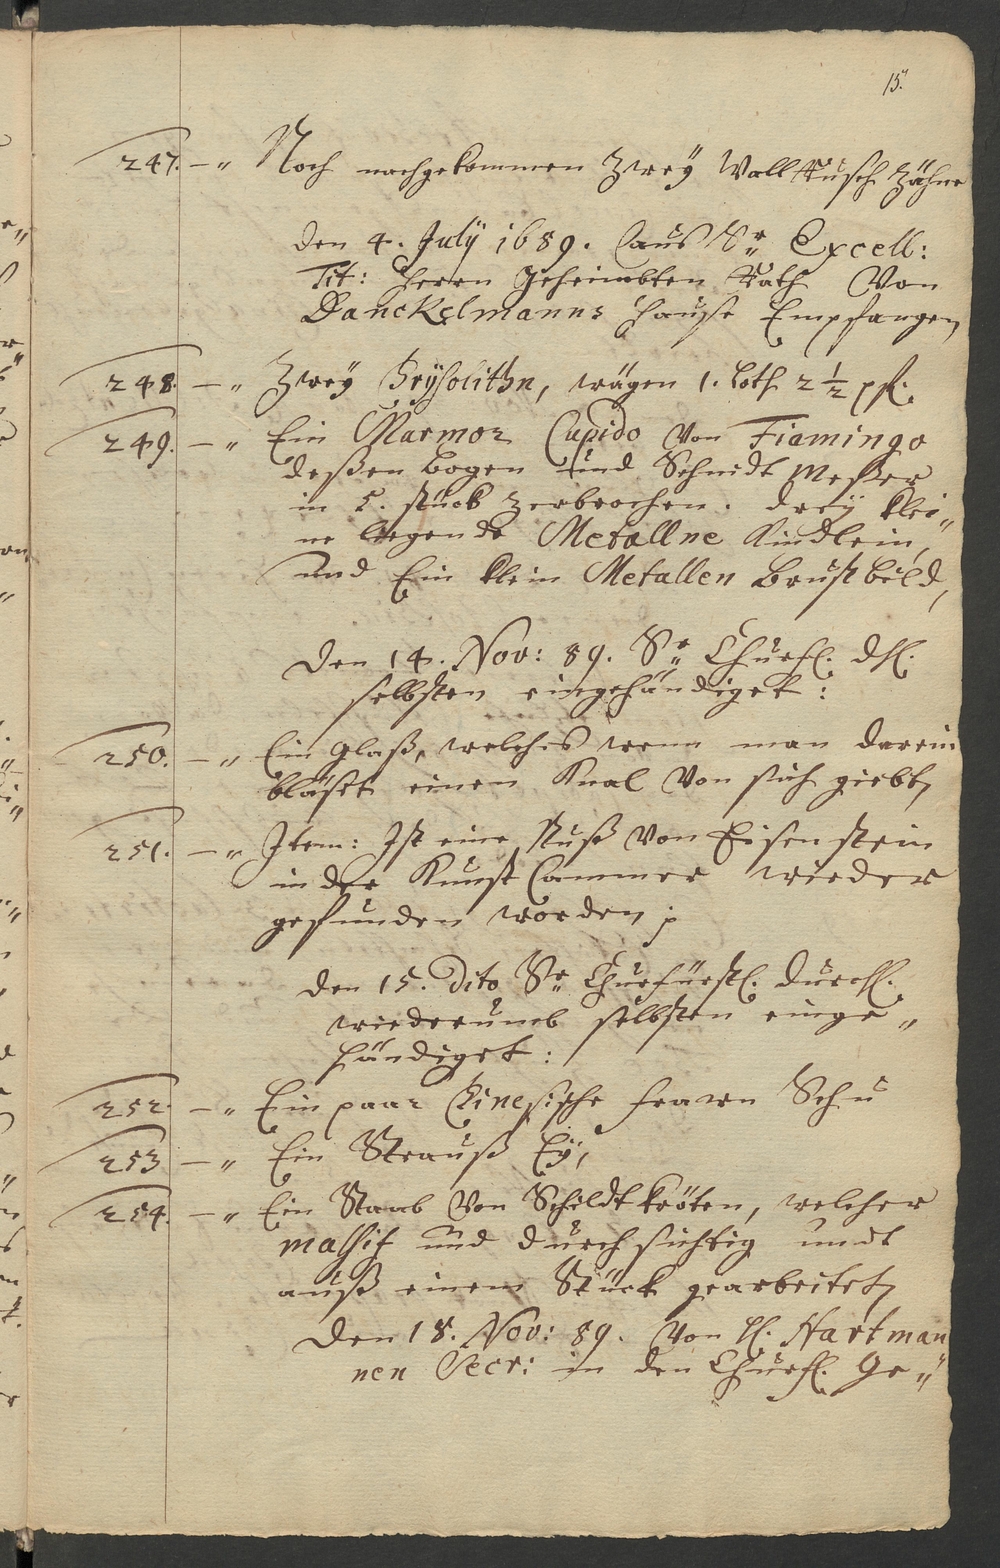 15.
247. — „ Noch nachgekommen Zweÿ Wallrusch Zähne
den 4. Julÿ 1689. aus Sr Excell:
Tit: Herrn Geheimbten Rath Von
Danckelmanns Hause Empfangen,
248. — „ Zweÿ Crÿsolithn, wägen 1. Loth 2 1/2 pf.
249. — „ Ein Marmor Cupido Von Fiamingo
deßen Bogen und Schnidt Meßer
in 5. stück zerbrochen. dreÿ klei„
ne liegende Metallne Kindlein,
und Ein klein Metallen Brustbild,
Den 14. Nov: 89. Sr Churfl. Dhl.
selbsten eingehändiget:
250. — „ Ein Glaß, welches wenn man darein
bläset einen Knal Von sich giebt,
251. — „ Item: Ist eine Nuß Von Eisenstein
in der Kunst Cammer wieder
gefunden worden;
den 15. Dito Sr Churfürstl. Durchl.
wiederumb selbsten einge„
händiget:
252. — „ Ein paar Chinesische frawen Schu
253 — „ Ein Strauß Eÿ,
254. — „ Ein Staab Von Schildtkröten, welcher
massif und durchsichtig undt
auß einem Stück gearbeitet,
Den 18. Nov: 89. Von H. Hartman
nen Secr: in den Churfl. Ge„